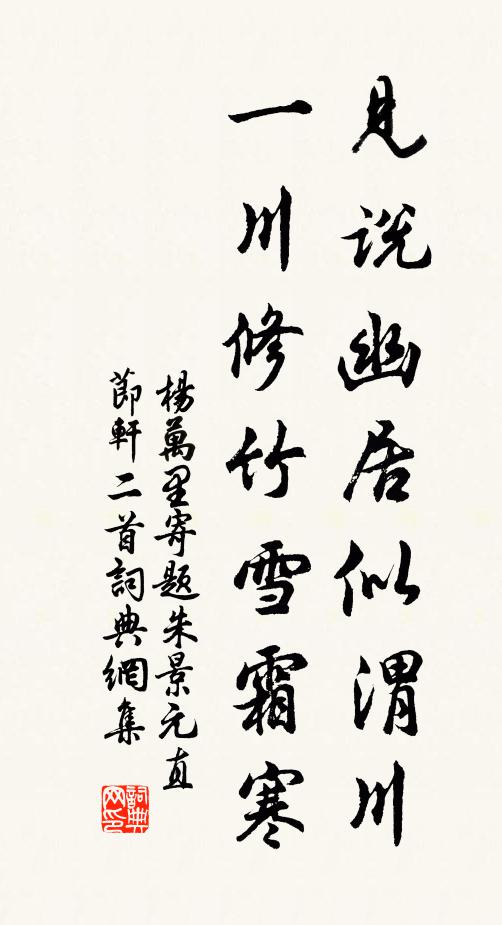 見說幽居似渭川
一川修竹雪霜寒
楊萬里寄題朱景元直
節軒二首詞典網集
詞典
网印